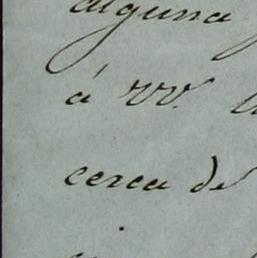 alguna
á VV.
cerca de